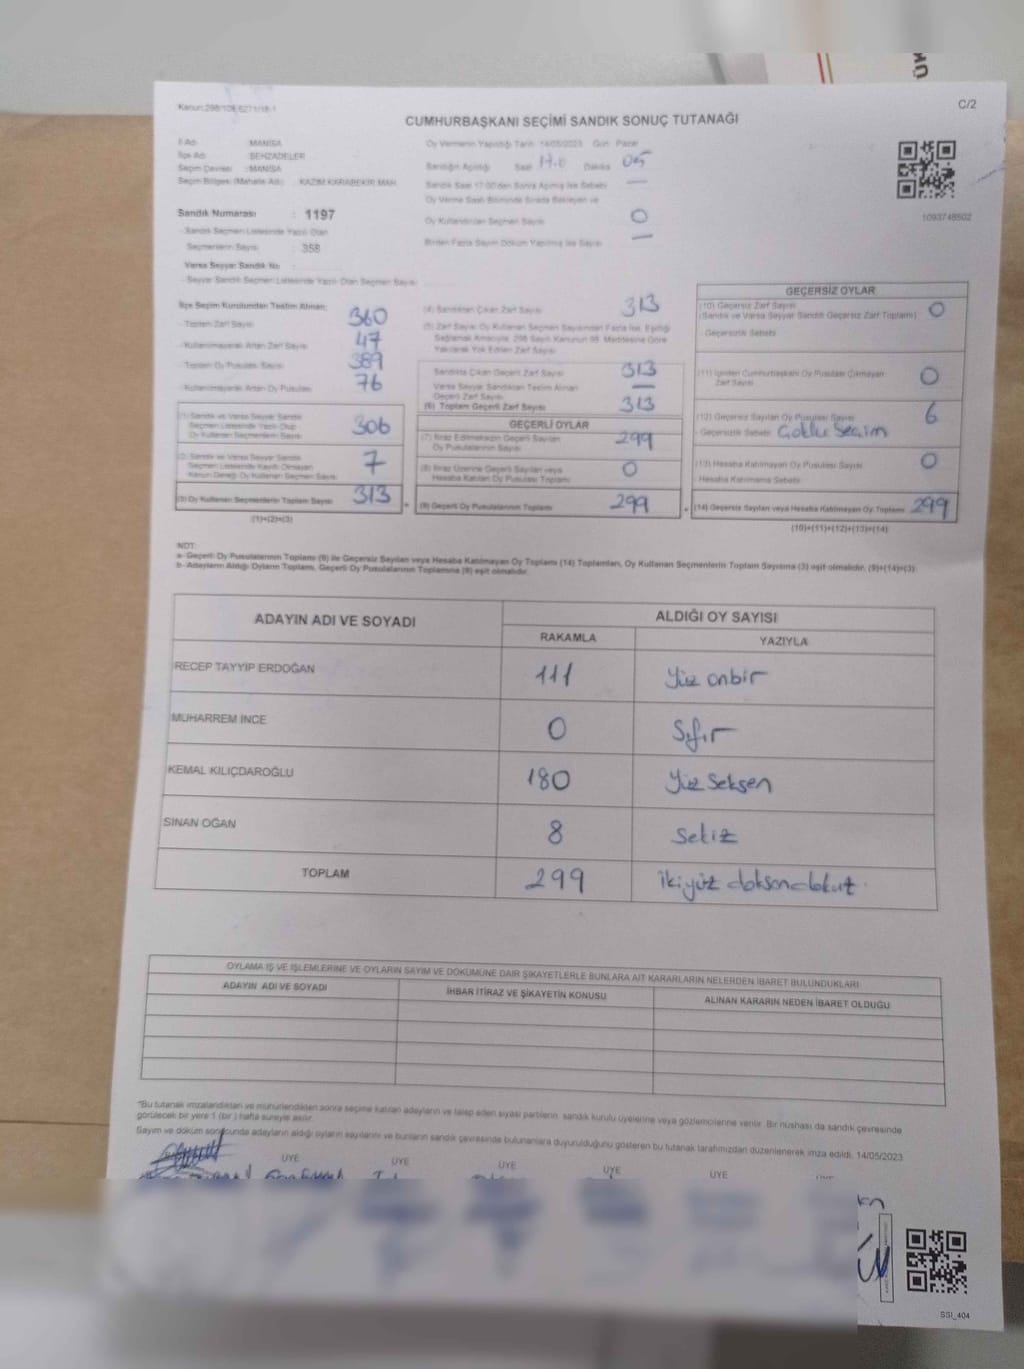 Kanun:298/105,6271/18-1
C/2
CUMHURBAŞKANI SEÇİMİ SANDIK SONUÇ TUTANAĞI
İl Adı : MANİSA
İlçe Adı : ŞEHZADELER
Seçim Çevresi : MANİSA
Seçim Bölgesi (Mahalle Adı) : KAZIM KARABEKİR MAH.
Sandık Numarası : 1197
- Sandık Seçmen Listesinde Yazılı Olan
Seçmenlerin Sayısı : 358
Varsa Seyyar Sandık No :
- Seyyar Sandık Seçmen Listesinde Yazılı Olan Seçmen Sayısı
Oy Vermenin Yapıldığı Tarih 14/05/2023 Gün Pazar
Sandığın Açıldığı Saat 17.0 Dakika 05
Sandık Saat 17:00'den Sonra Açılmış İse Sebebi —
Oy Verme Saati Bitiminde Sırada Bekleyen ve
Oy Kullandırılan Seçmen Sayısı 0
Birden Fazla Sayım Döküm Yapılmış İse Sayısı —
1093748502
İlçe Seçim Kurulundan Teslim Alınan;
- Toplam Zarf Sayısı 360
- Kullanılmayarak Artan Zarf Sayısı 47
- Toplam Oy Pusulası Sayısı 389
- Kullanılmayarak Artan Oy Pusulası 76
(1) Sandık ve Varsa Seyyar Sandık
Seçmen Listesinde Yazılı Olup
Oy Kullanan Seçmenlerin Sayısı 306
(2) Sandık ve Varsa Seyyar Sandık
Seçmen Listesinde Kayıtlı Olmayan
Kanun Gereği Oy Kullanan Seçmenlerin Sayısı 7
(3) Oy Kullanan Seçmenlerin Toplam Sayısı 313
(1)+(2)=(3)
(4) Sandıktan Çıkan Zarf Sayısı 313
(5) Zarf Sayısı Oy Kullanan Seçmen Sayısından Fazla İse, Eşitliği
Sağlamak Amacıyla; 298 Sayılı Kanunun 98. Maddesine Göre
Yakılarak Yok Edilen Zarf Sayısı
Sandıkta Çıkan Geçerli Zarf Sayısı 313
Varsa Seyyar Sandıktan Teslim Alınan
Geçerli Zarf Sayısı —
(6) Toplam Geçerli Zarf Sayısı 313
GEÇERLİ OYLAR
(7) İtiraz Edilmeksizin Geçerli Sayılan
Oy Pusulalarının Sayısı 299
(8) İtiraz Üzerine Geçerli Sayılan veya
Hesaba Katılan Oy Pusulası Toplamı 0
(9) Geçerli Oy Pusulalarının Toplamı 299
GEÇERSİZ OYLAR
(10) Geçersiz Zarf Sayısı
(Sandık ve Varsa Seyyar Sandık Geçersiz Zarf Toplamı) 0
- Geçersizlik Sebebi
(11) İçinden Cumhurbaşkanı Oy Pusulası Çıkmayan
Zarf Sayısı 0
(12) Geçersiz Sayılan Oy Pusulası Sayısı 6
- Geçersizlik Sebebi Çoklu Seçim
(13) Hesaba Katılmayan Oy Pusulası Sayısı 0
Hesaba Katılmama Sebebi
(14) Geçersiz Sayılan veya Hesaba Katılmayan Oy Toplamı 299
(10)+(11)+(12)+(13)=(14)
NOT:
a- Geçerli Oy Pusulalarının Toplamı (9) ile Geçersiz Sayılan veya Hesaba Katılmayan Oy Toplamı (14) Toplamları, Oy Kullanan Seçmenlerin Toplam Sayısına (3) eşit olmalıdır. (9)+(14)=(3)
b- Adayların Aldığı Oyların Toplamı, Geçerli Oy Pusulalarının Toplamına (9) eşit olmalıdır.
ADAYIN ADI VE SOYADI ALDIĞI OY SAYISI
RAKAMLA YAZIYLA
RECEP TAYYİP ERDOĞAN 111 Yüz onbir
MUHARREM İNCE 0 Sıfır
KEMAL KILIÇDAROĞLU 180 Yüz Seksen
SİNAN OĞAN 8 Sekiz
TOPLAM 299 İkiyüz doksandokuz
OYLAMA İŞ VE İŞLEMLERİNE VE OYLARIN SAYIM VE DÖKÜMÜNE DAİR ŞİKAYETLERLE BUNLARA AİT KARARLARIN NELERDEN İBARET BULUNDUKLARI
ADAYIN ADI VE SOYADI İHBAR İTİRAZ VE ŞİKAYETİN KONUSU ALINAN KARARIN NEDEN İBARET OLDUĞU
*Bu tutanak imzalandıktan ve mühürlendikten sonra seçime katılan adayların ve talep eden siyasi partilerin sandık kurulu üyelerine veya gözlemcilerine verilir. Bir nüshası da sandık çevresinde
görülecek bir yere 1 (bir) hafta süreyle asılır.
Sayım ve döküm sonucunda adayların aldığı oyların sayılarını ve bunların sandık çevresinde bulunanlara duyurulduğunu gösteren bu tutanak tarafımızdan düzenlenerek imza edildi. 14/05/2023
ÜYE ÜYE ÜYE ÜYE ÜYE
SSI_404